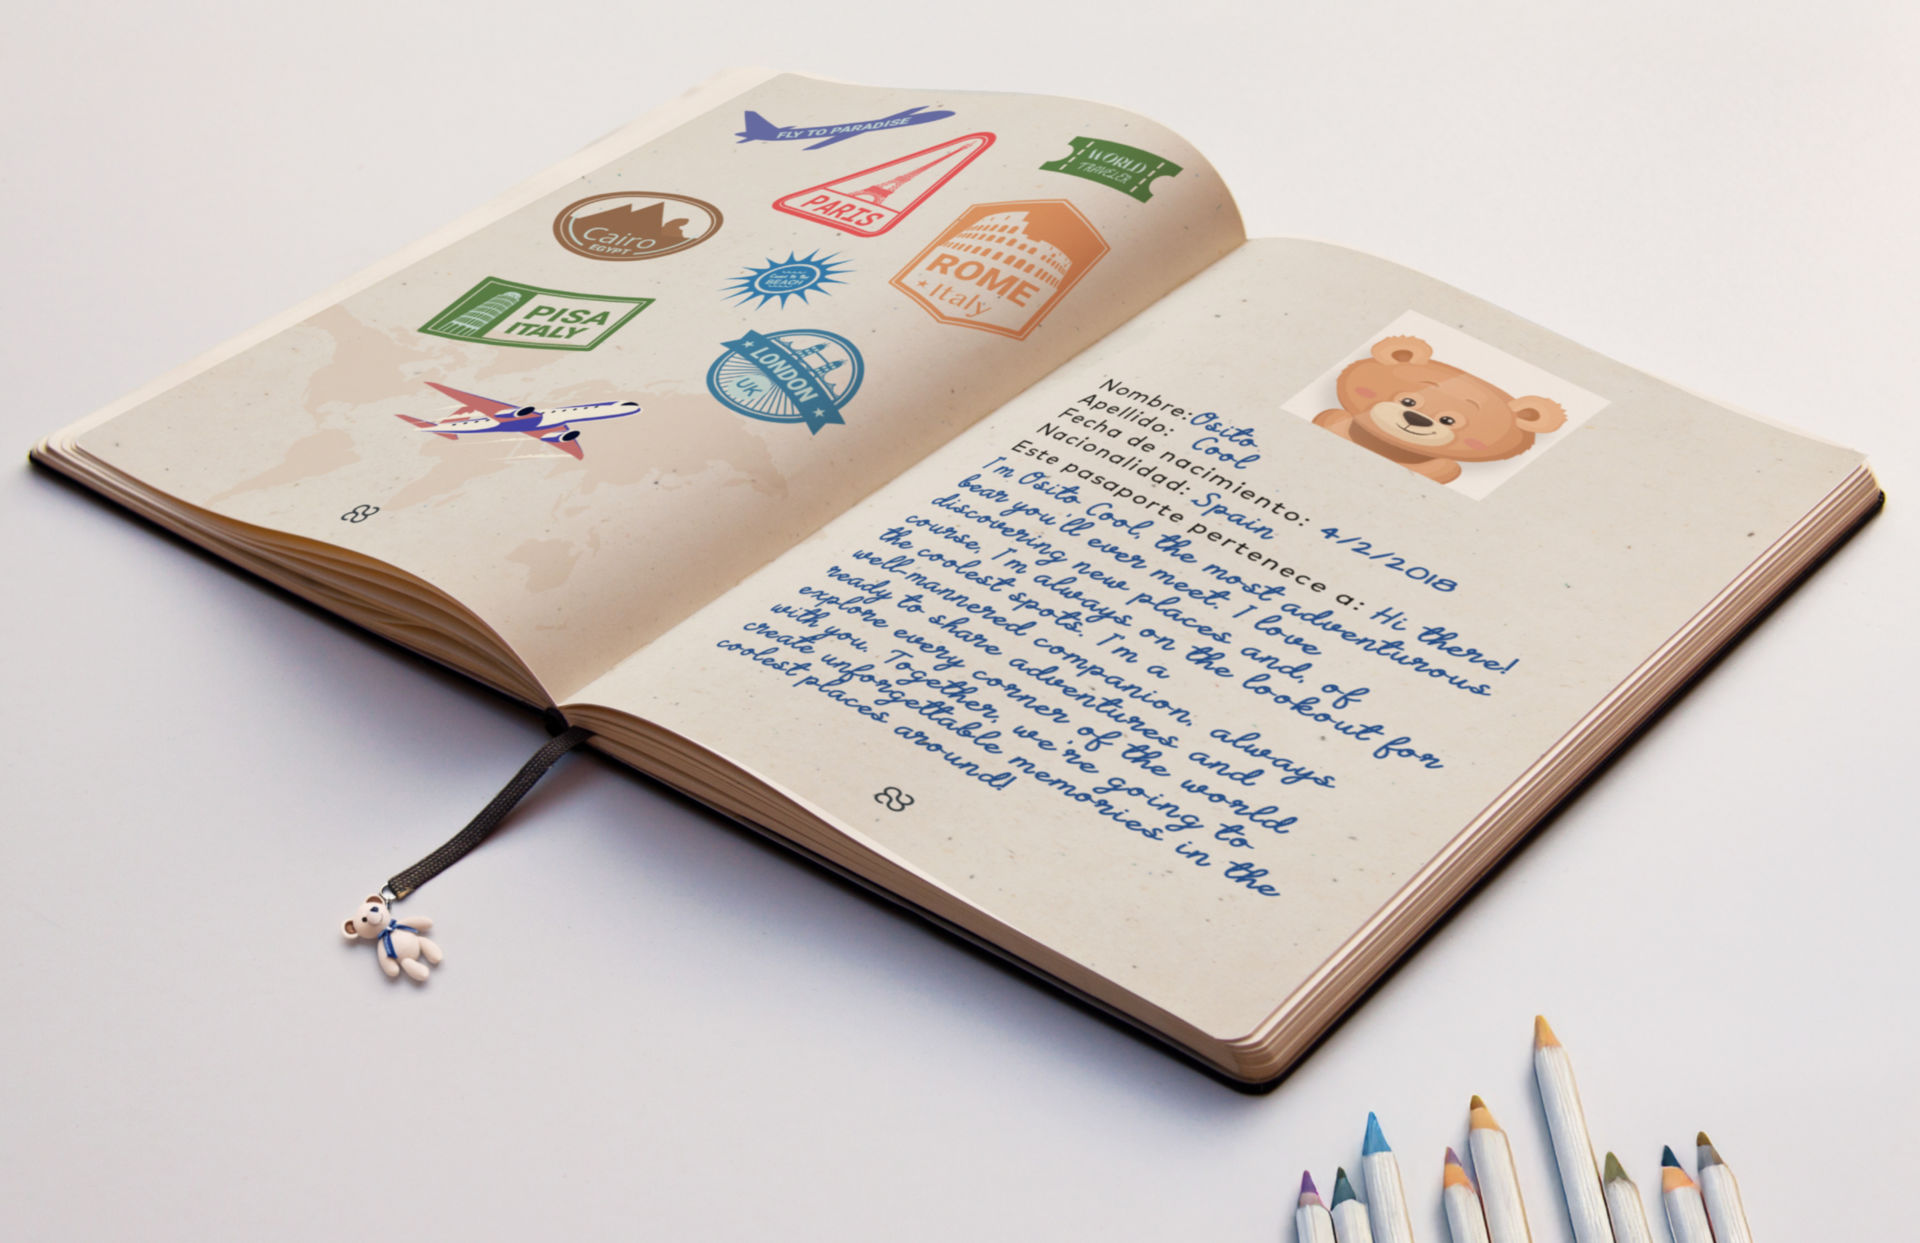 FLY TO PARADISE
PARIS
WORLD
TRAVELER
Cairo
EGYPT
BEACH
ROME
Italy
PISA
ITALY
LONDON
UK
Nombre: Osito
Apellido: Cool
Fecha de nacimiento: 4/2/2018
Nacionalidad: Spain
Este pasaporte pertenece a: Hi there!
I'm Osito Cool, the most adventurous
bear you'll ever meet. I love
discovering new places and, of
course, I'm always on the lookout for
the coolest spots. I'm a
well-mannered companion, always
ready to share adventures and
explore every corner of the world
with you. Together, we're going to
create unforgettable memories in the
coolest places around!